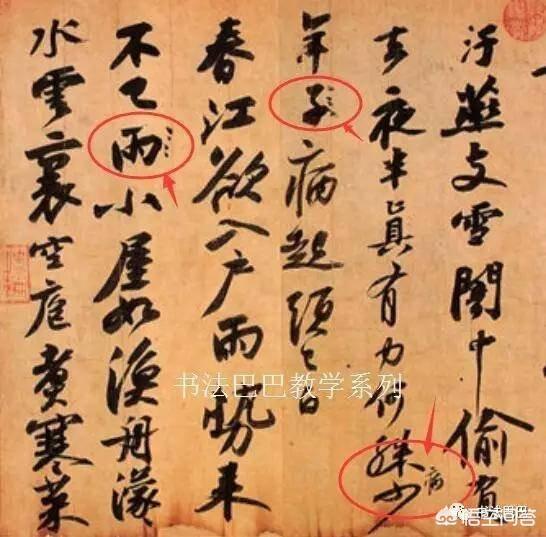 汙燕支雪闇中偷負
去夜半真有力何殊少
病
年子病起須已白
春江欲入户雨勢来
不已雨小屋如漁舟濛〻
水雲裏空庖煮寒菜
书法巴巴教学系列
书法巴巴
悟空问答